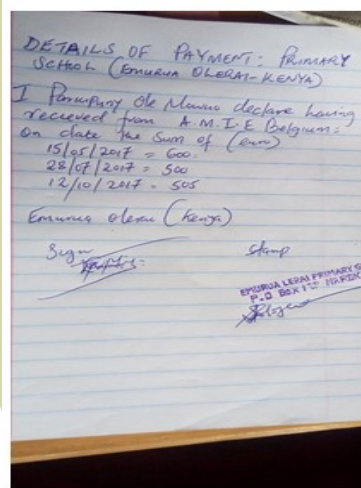 DETAILS OF PAYMENT: PRIMARY
SCHOOL (EMURUA OLERAI-KENYA)
I Ole declare having
recieved from A.M.I.E Belgium:
on date the sum of (euro)
15/05/2017 = 600.
28/07/2017 = 500
12/10/2017 = 505
Emurua olerai (kenya)
Sign stamp
EMURUA LERAI PRIMARY
P.O BOX